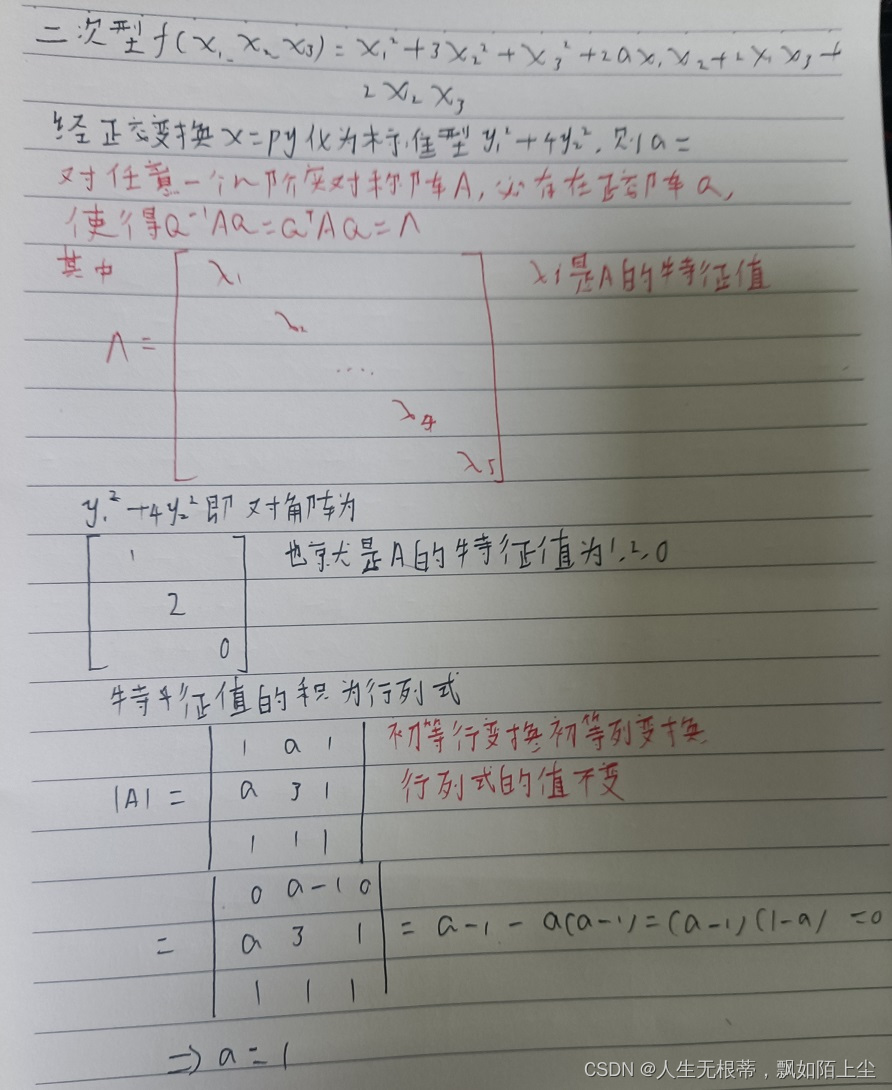 二次型f(x₁ x₂ x₃) = x₁² + 3x₂² + x₃² + 2ax₁x₂ + 2x₁x₃ +
2x₂x₃
经正交变换x=py化为标准型y₁²+4y₂², 则a=
对任意一个n阶实对称阵A, 必存在正交阵Q,
使得Q⁻¹AQ=QᵀAQ=Λ
其中 λ₁ λi是A的特征值
λ₂
Λ =
....
λ4
λ5
y₁²+4y₂²即对角阵为
1 也就是A的特征值为1,2,0
2
0
特征值的积为行列式
1 a 1 初等行变换初等列变换
|A| = a 3 1 行列式的值不变
1 1 1
0 a-1 0
= a 3 1 = a-1-a(a-1)=(a-1)(1-a) =0
1 1 1
⇒ a=1
CSDN @人生无根蒂，飘如陌上尘